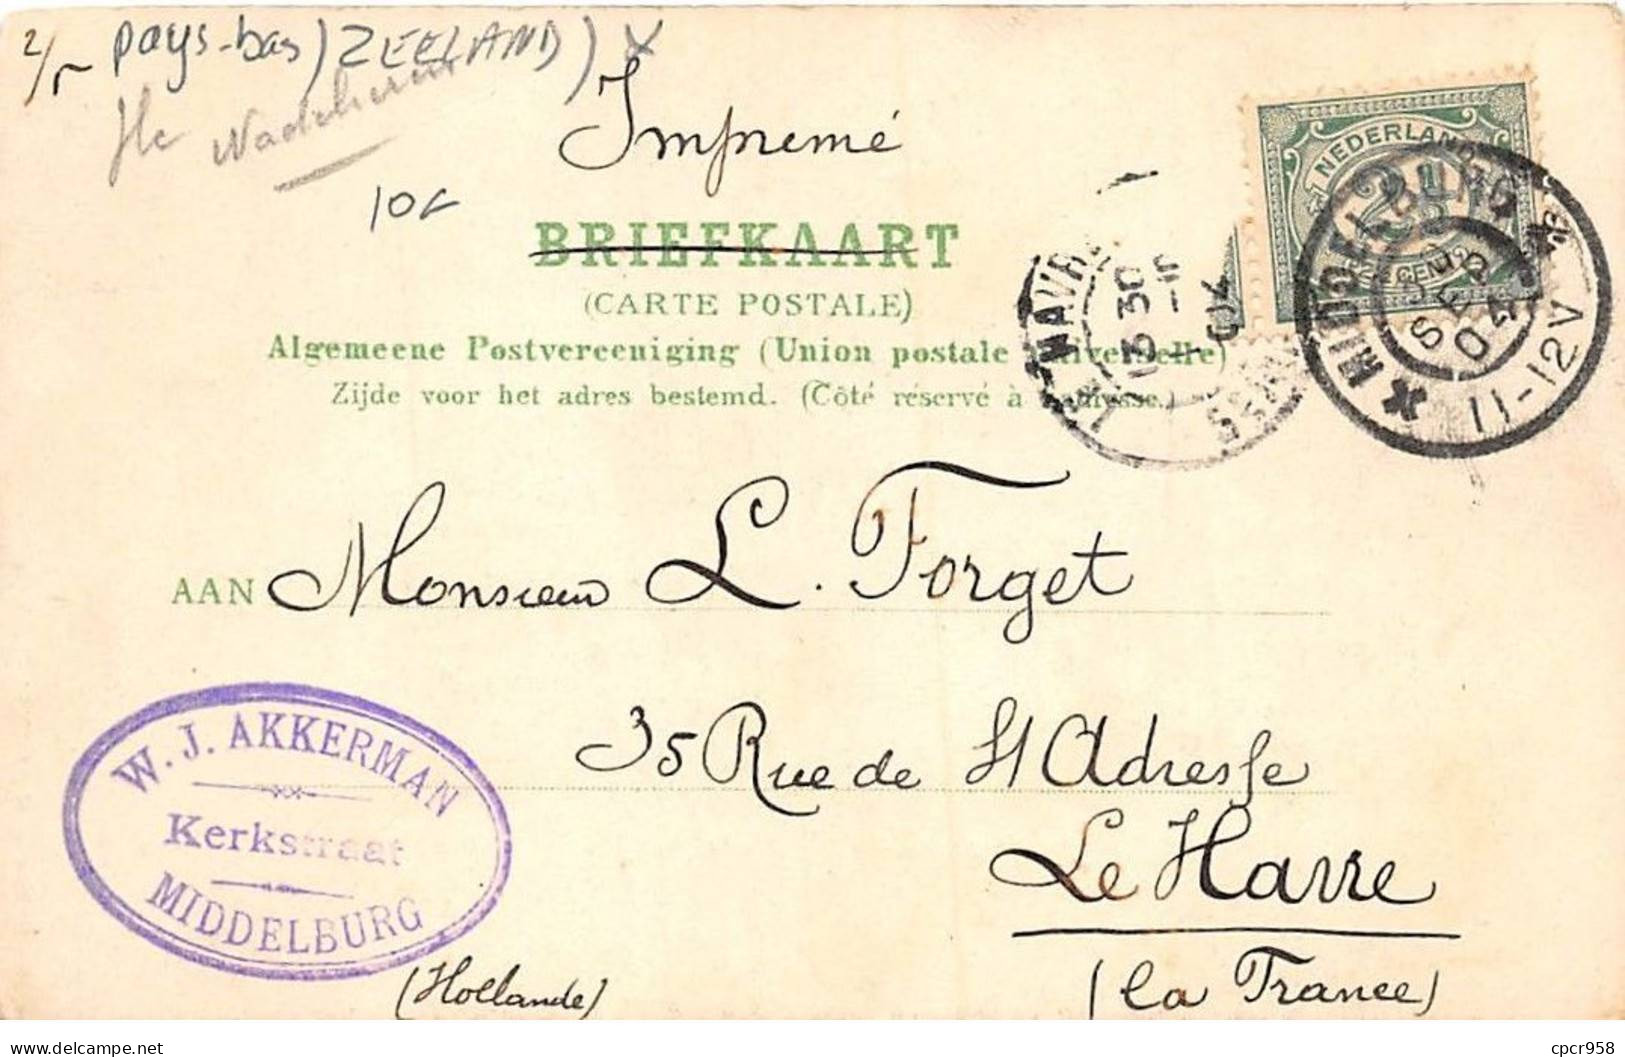 2/5 pays-bas) ZEELAND) X
Ile Walcheren
Imprimé
10€
BRIEFKAART
(CARTE POSTALE)
Algemeene Postvereeniging (Union postale universelle)
Zijde voor het adres bestemd. (Côté réservé à l'adresse.)
NEDERLAND
2½
CENT
MIDDELBURG
5 SEP 04
11-12V
LE HAVRE
13 30
04
AAN Monsieur L. Forget
35 Rue de St Adresse
Le Havre
(la France)
W. J. AKKERMAN
Kerkstraat
MIDDELBURG
(Hollande)
delcampe.net
cpcr958